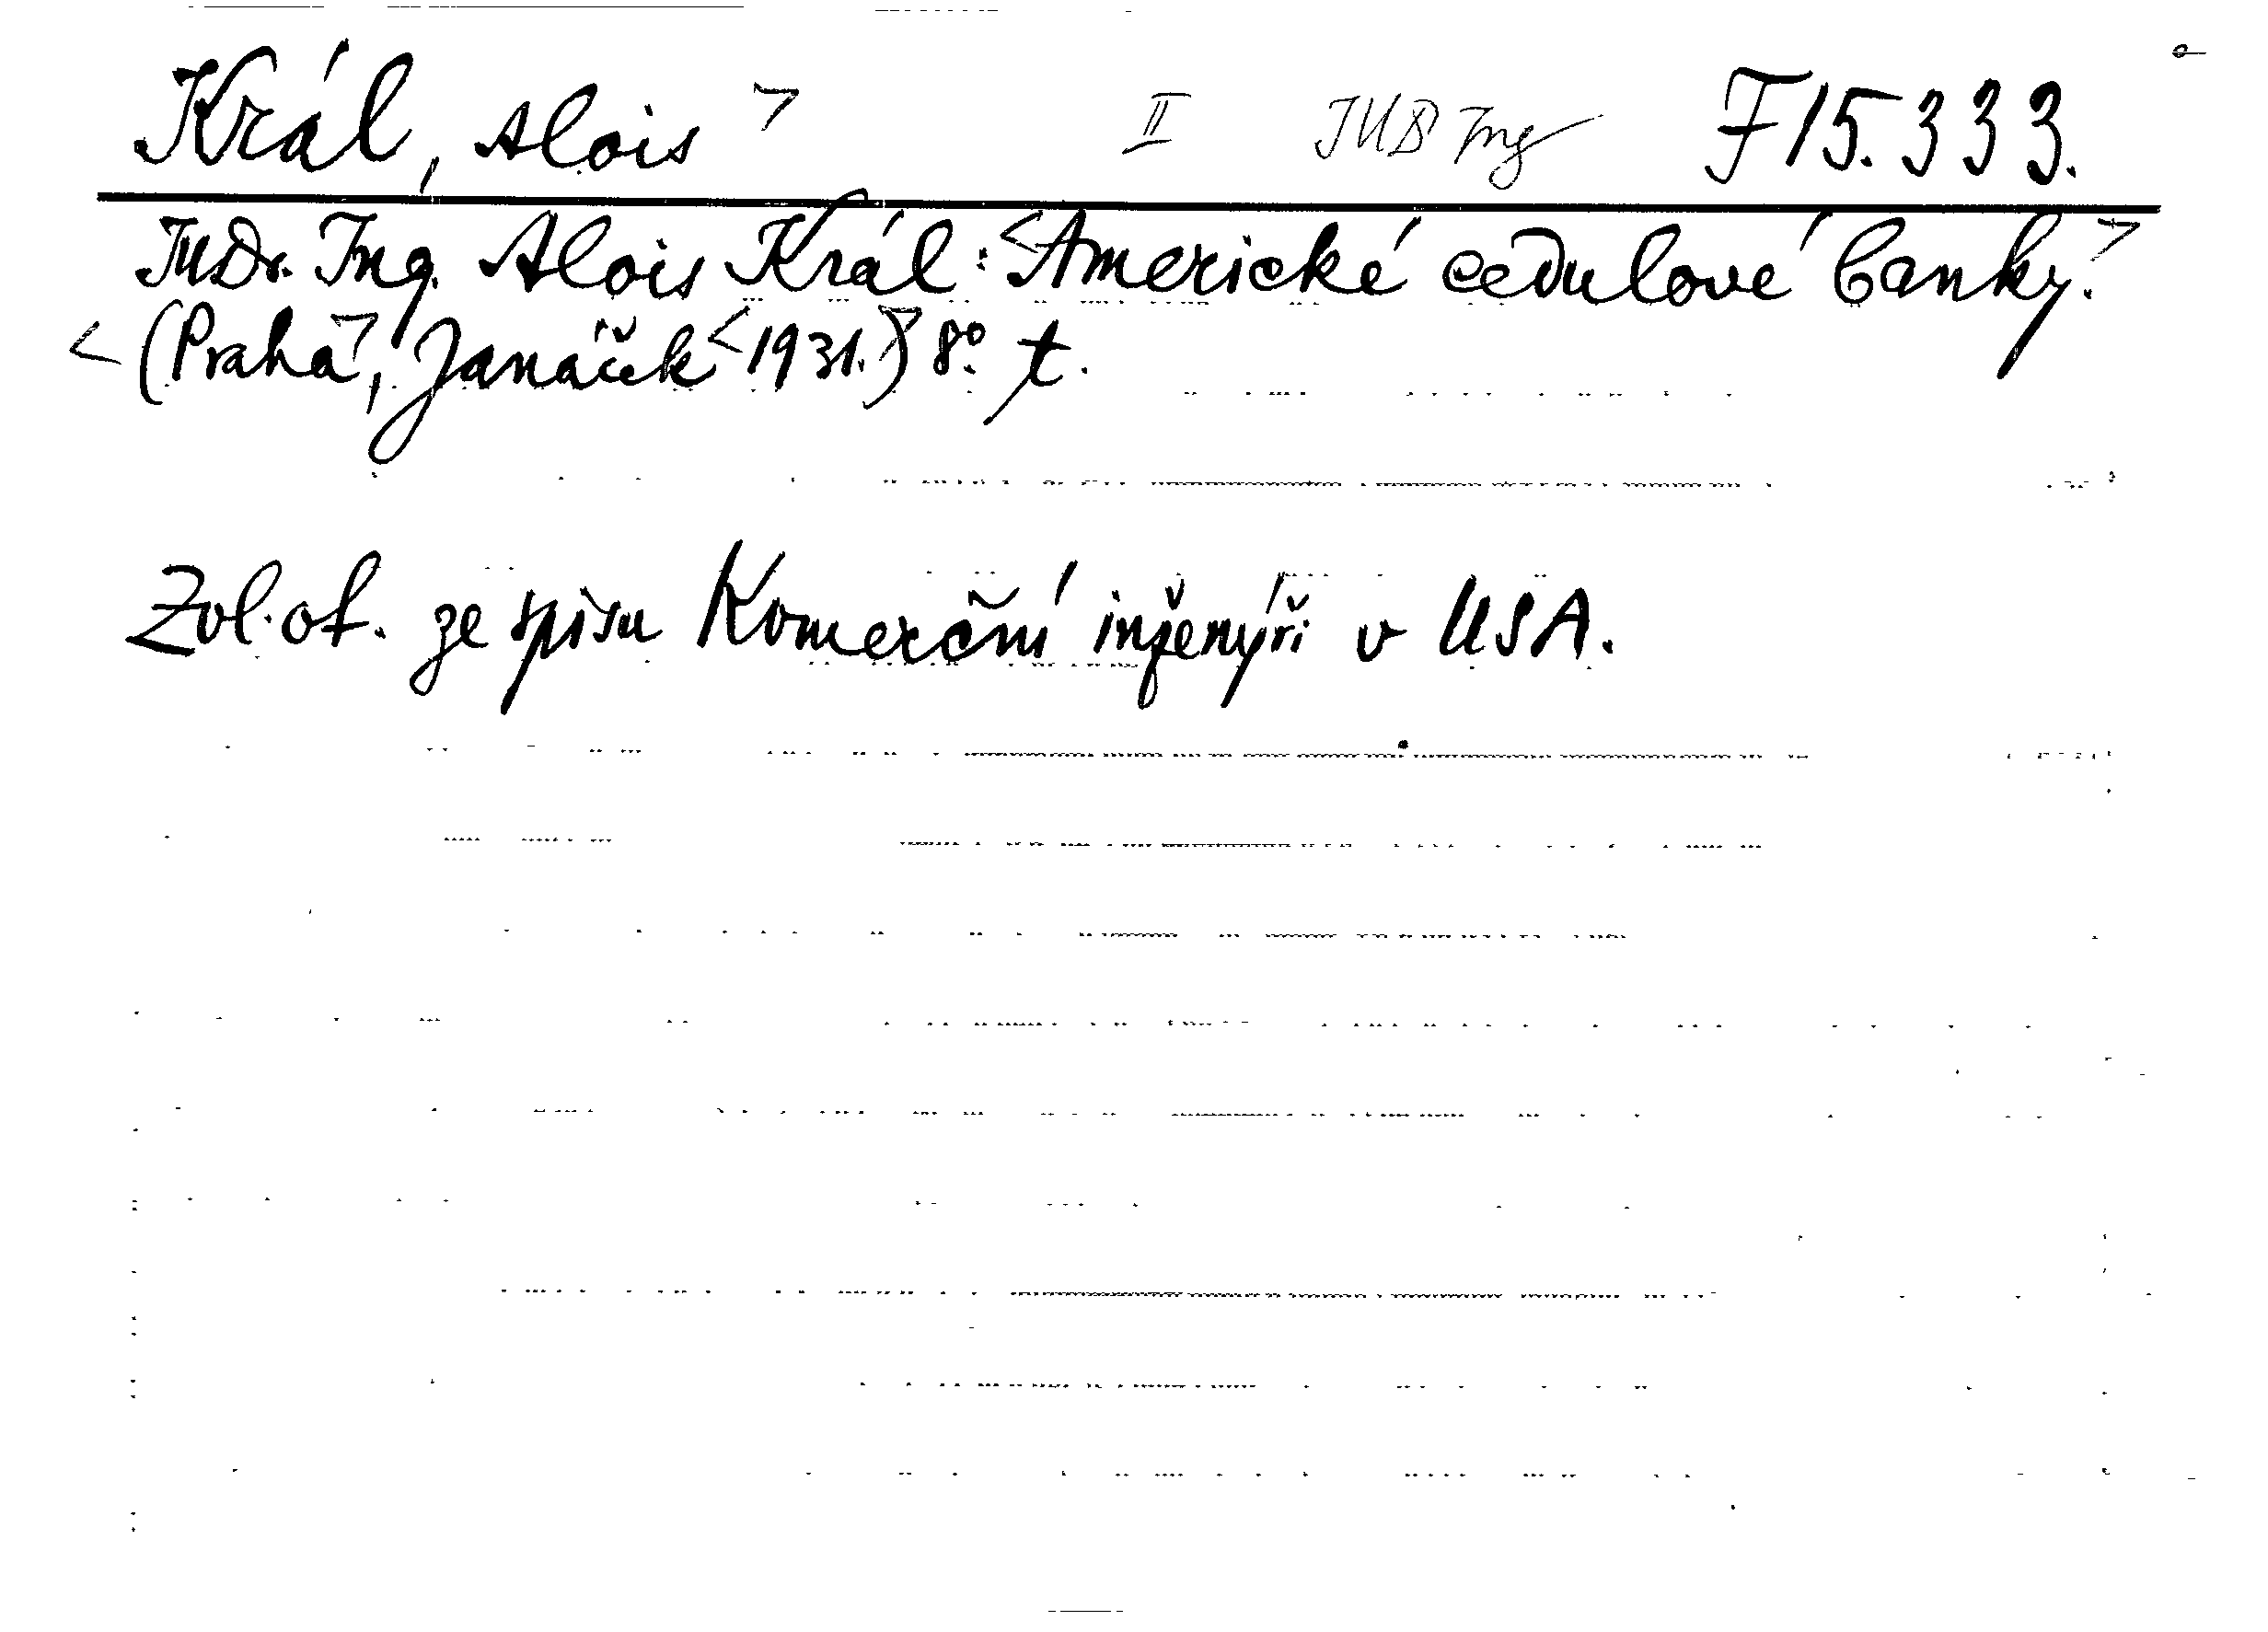 Král, Alois > II JUD Ing F 15.333.
JUDr. Ing. Alois Král: <Americké cedulové banky.>
<(Praha>, Janáček <1931.)> 8° t.
Zvl. ot. ze spisu Komerční inženýři v USA.